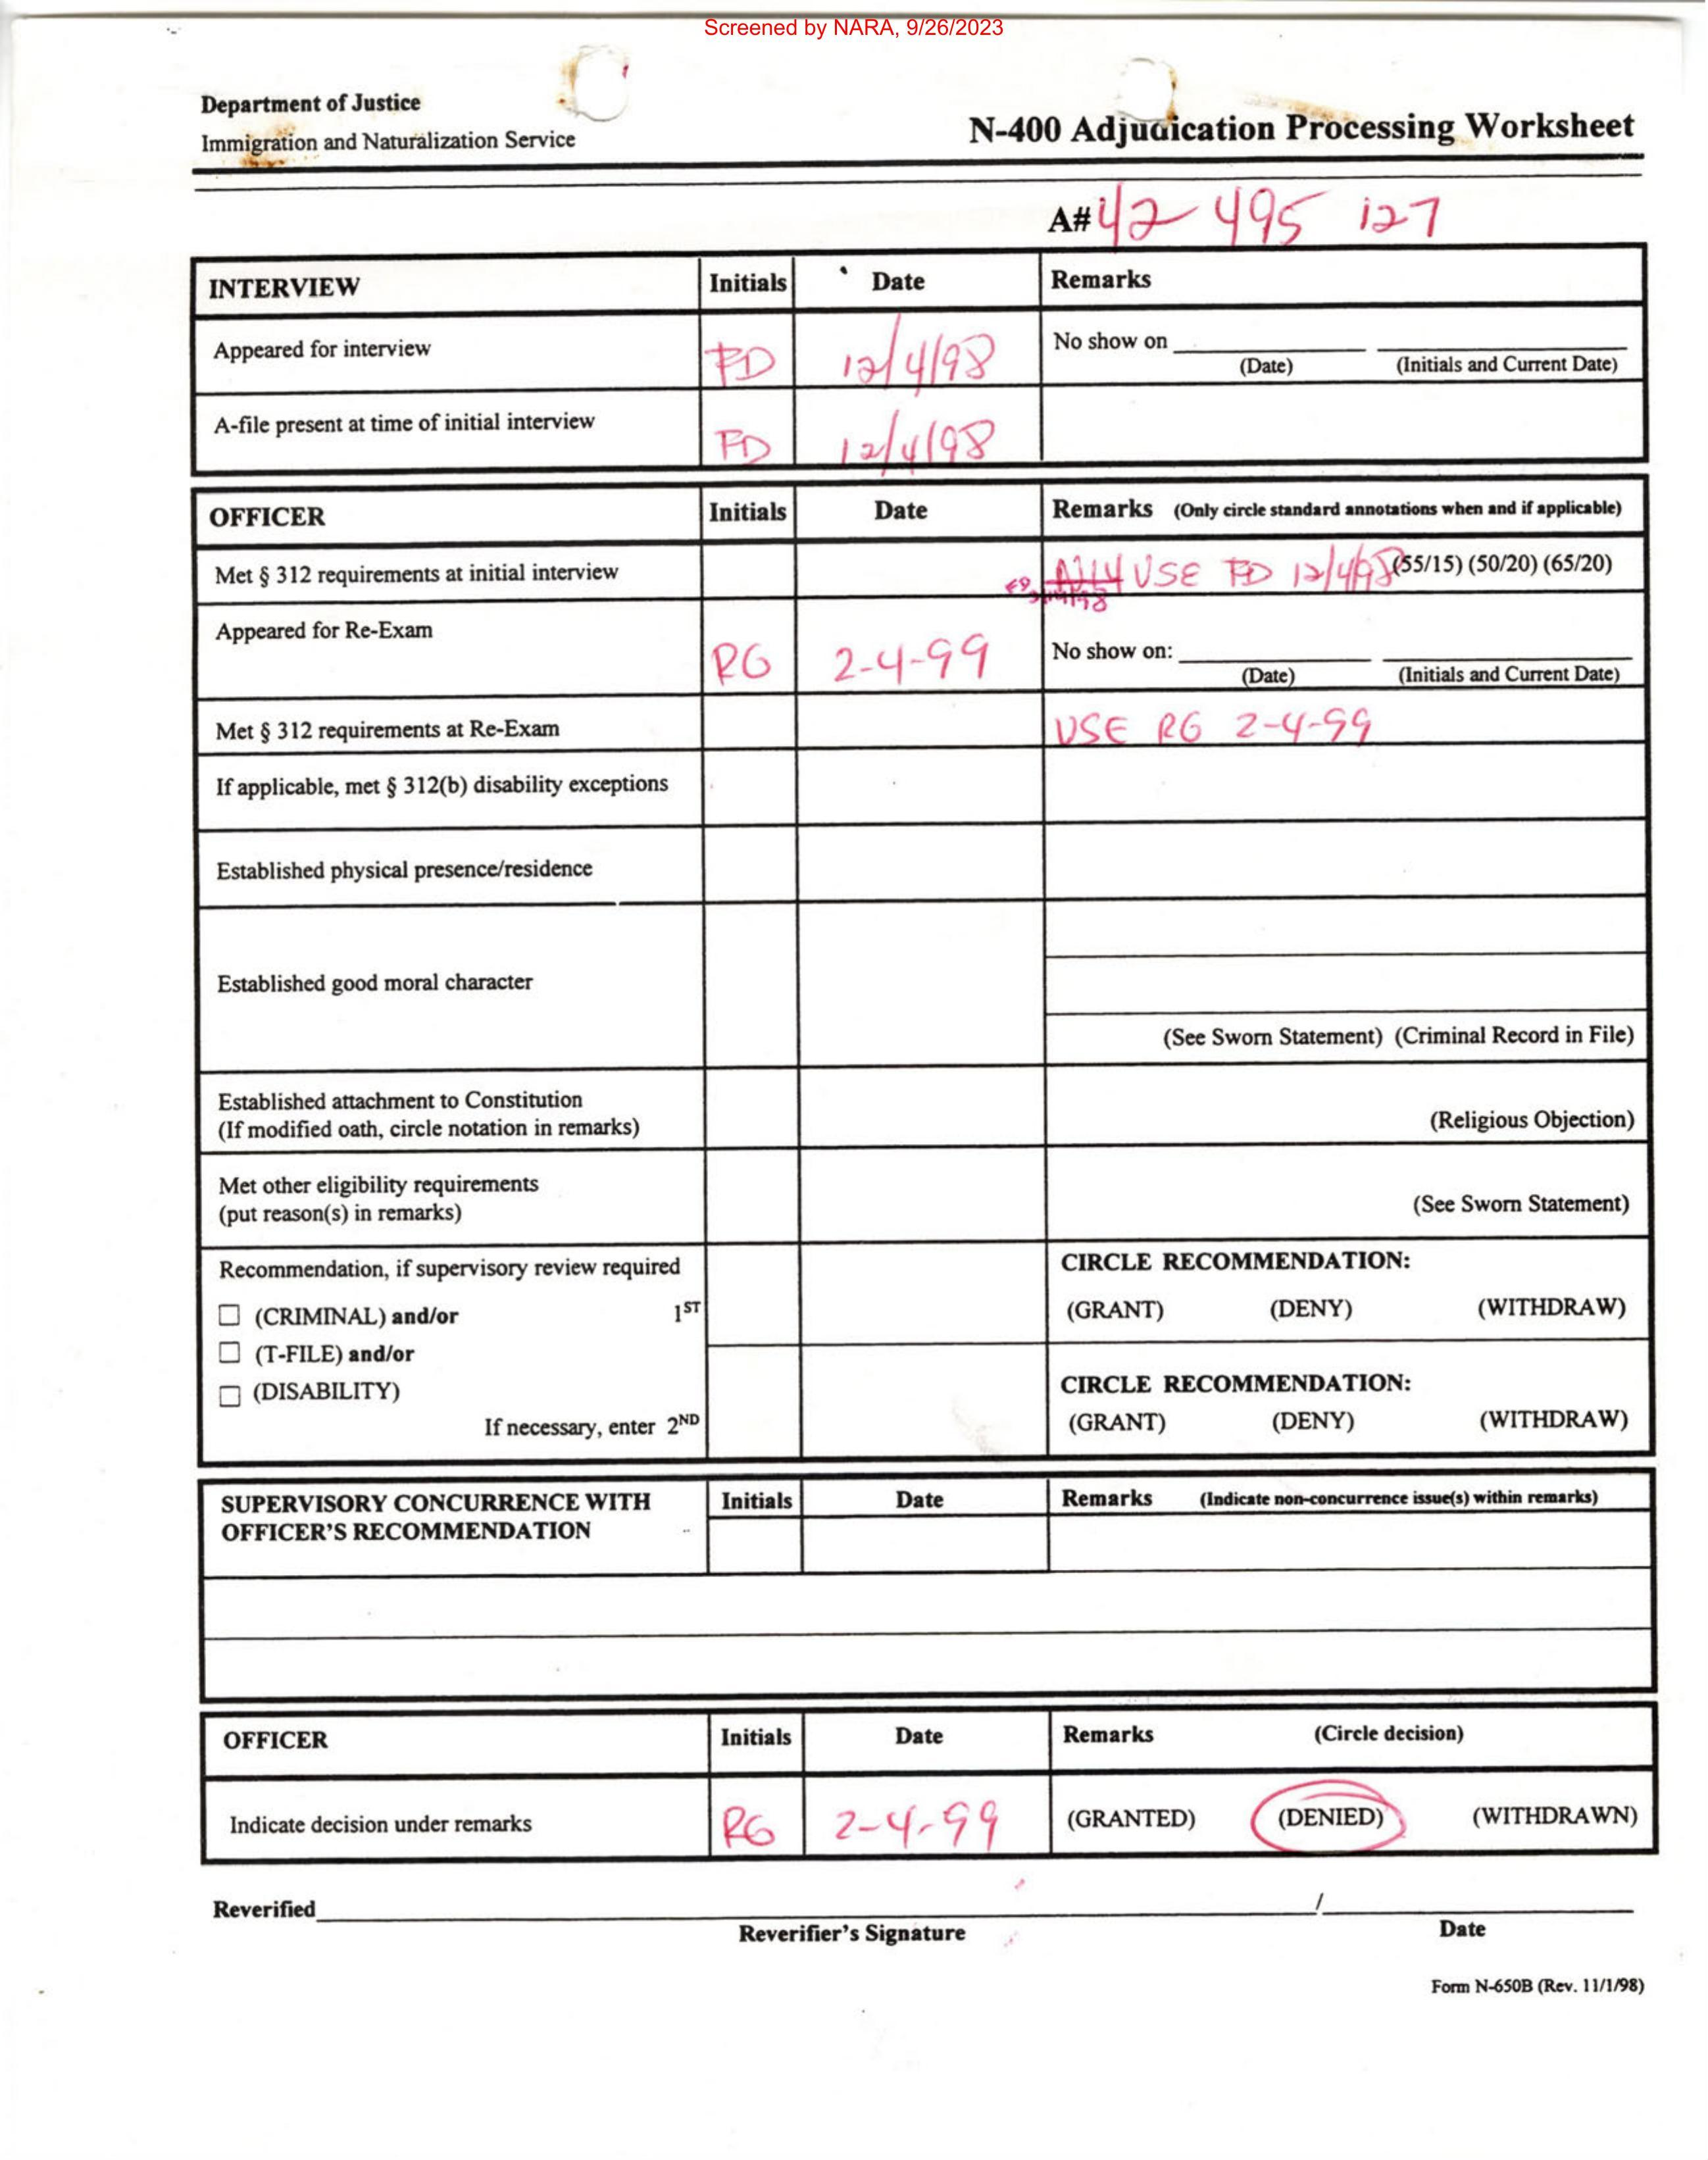 Screened by NARA, 9/26/2023
Department of Justice
Immigration and Naturalization Service
N-400 Adjudication Processing Worksheet
A# 42 495 127
INTERVIEW Initials Date Remarks
Appeared for interview FD 12/4/98 No show on
(Date) (Initials and Current Date)
A-file present at time of initial interview FD 12/4/98
OFFICER Initials Date Remarks (Only circle standard annotations when and if applicable)
Met § 312 requirements at initial interview USE FD 12/4/98 (55/15) (50/20) (65/20)
Appeared for Re-Exam RG 2-4-99 No show on:
(Date) (Initials and Current Date)
Met § 312 requirements at Re-Exam USE RG 2-4-99
If applicable, met § 312(b) disability exceptions
Established physical presence/residence
Established good moral character
(See Sworn Statement) (Criminal Record in File)
Established attachment to Constitution
(If modified oath, circle notation in remarks) (Religious Objection)
Met other eligibility requirements
(put reason(s) in remarks) (See Sworn Statement)
Recommendation, if supervisory review required CIRCLE RECOMMENDATION:
(CRIMINAL) and/or 1ST (GRANT) (DENY) (WITHDRAW)
(T-FILE) and/or
(DISABILITY) CIRCLE RECOMMENDATION:
If necessary, enter 2ND (GRANT) (DENY) (WITHDRAW)
SUPERVISORY CONCURRENCE WITH Initials Date Remarks (Indicate non-concurrence issue(s) within remarks)
OFFICER'S RECOMMENDATION
OFFICER Initials Date Remarks (Circle decision)
Indicate decision under remarks RG 2-4-99 (GRANTED) (DENIED) (WITHDRAWN)
Reverified /
Reverifier's Signature Date
Form N-650B (Rev. 11/1/98)